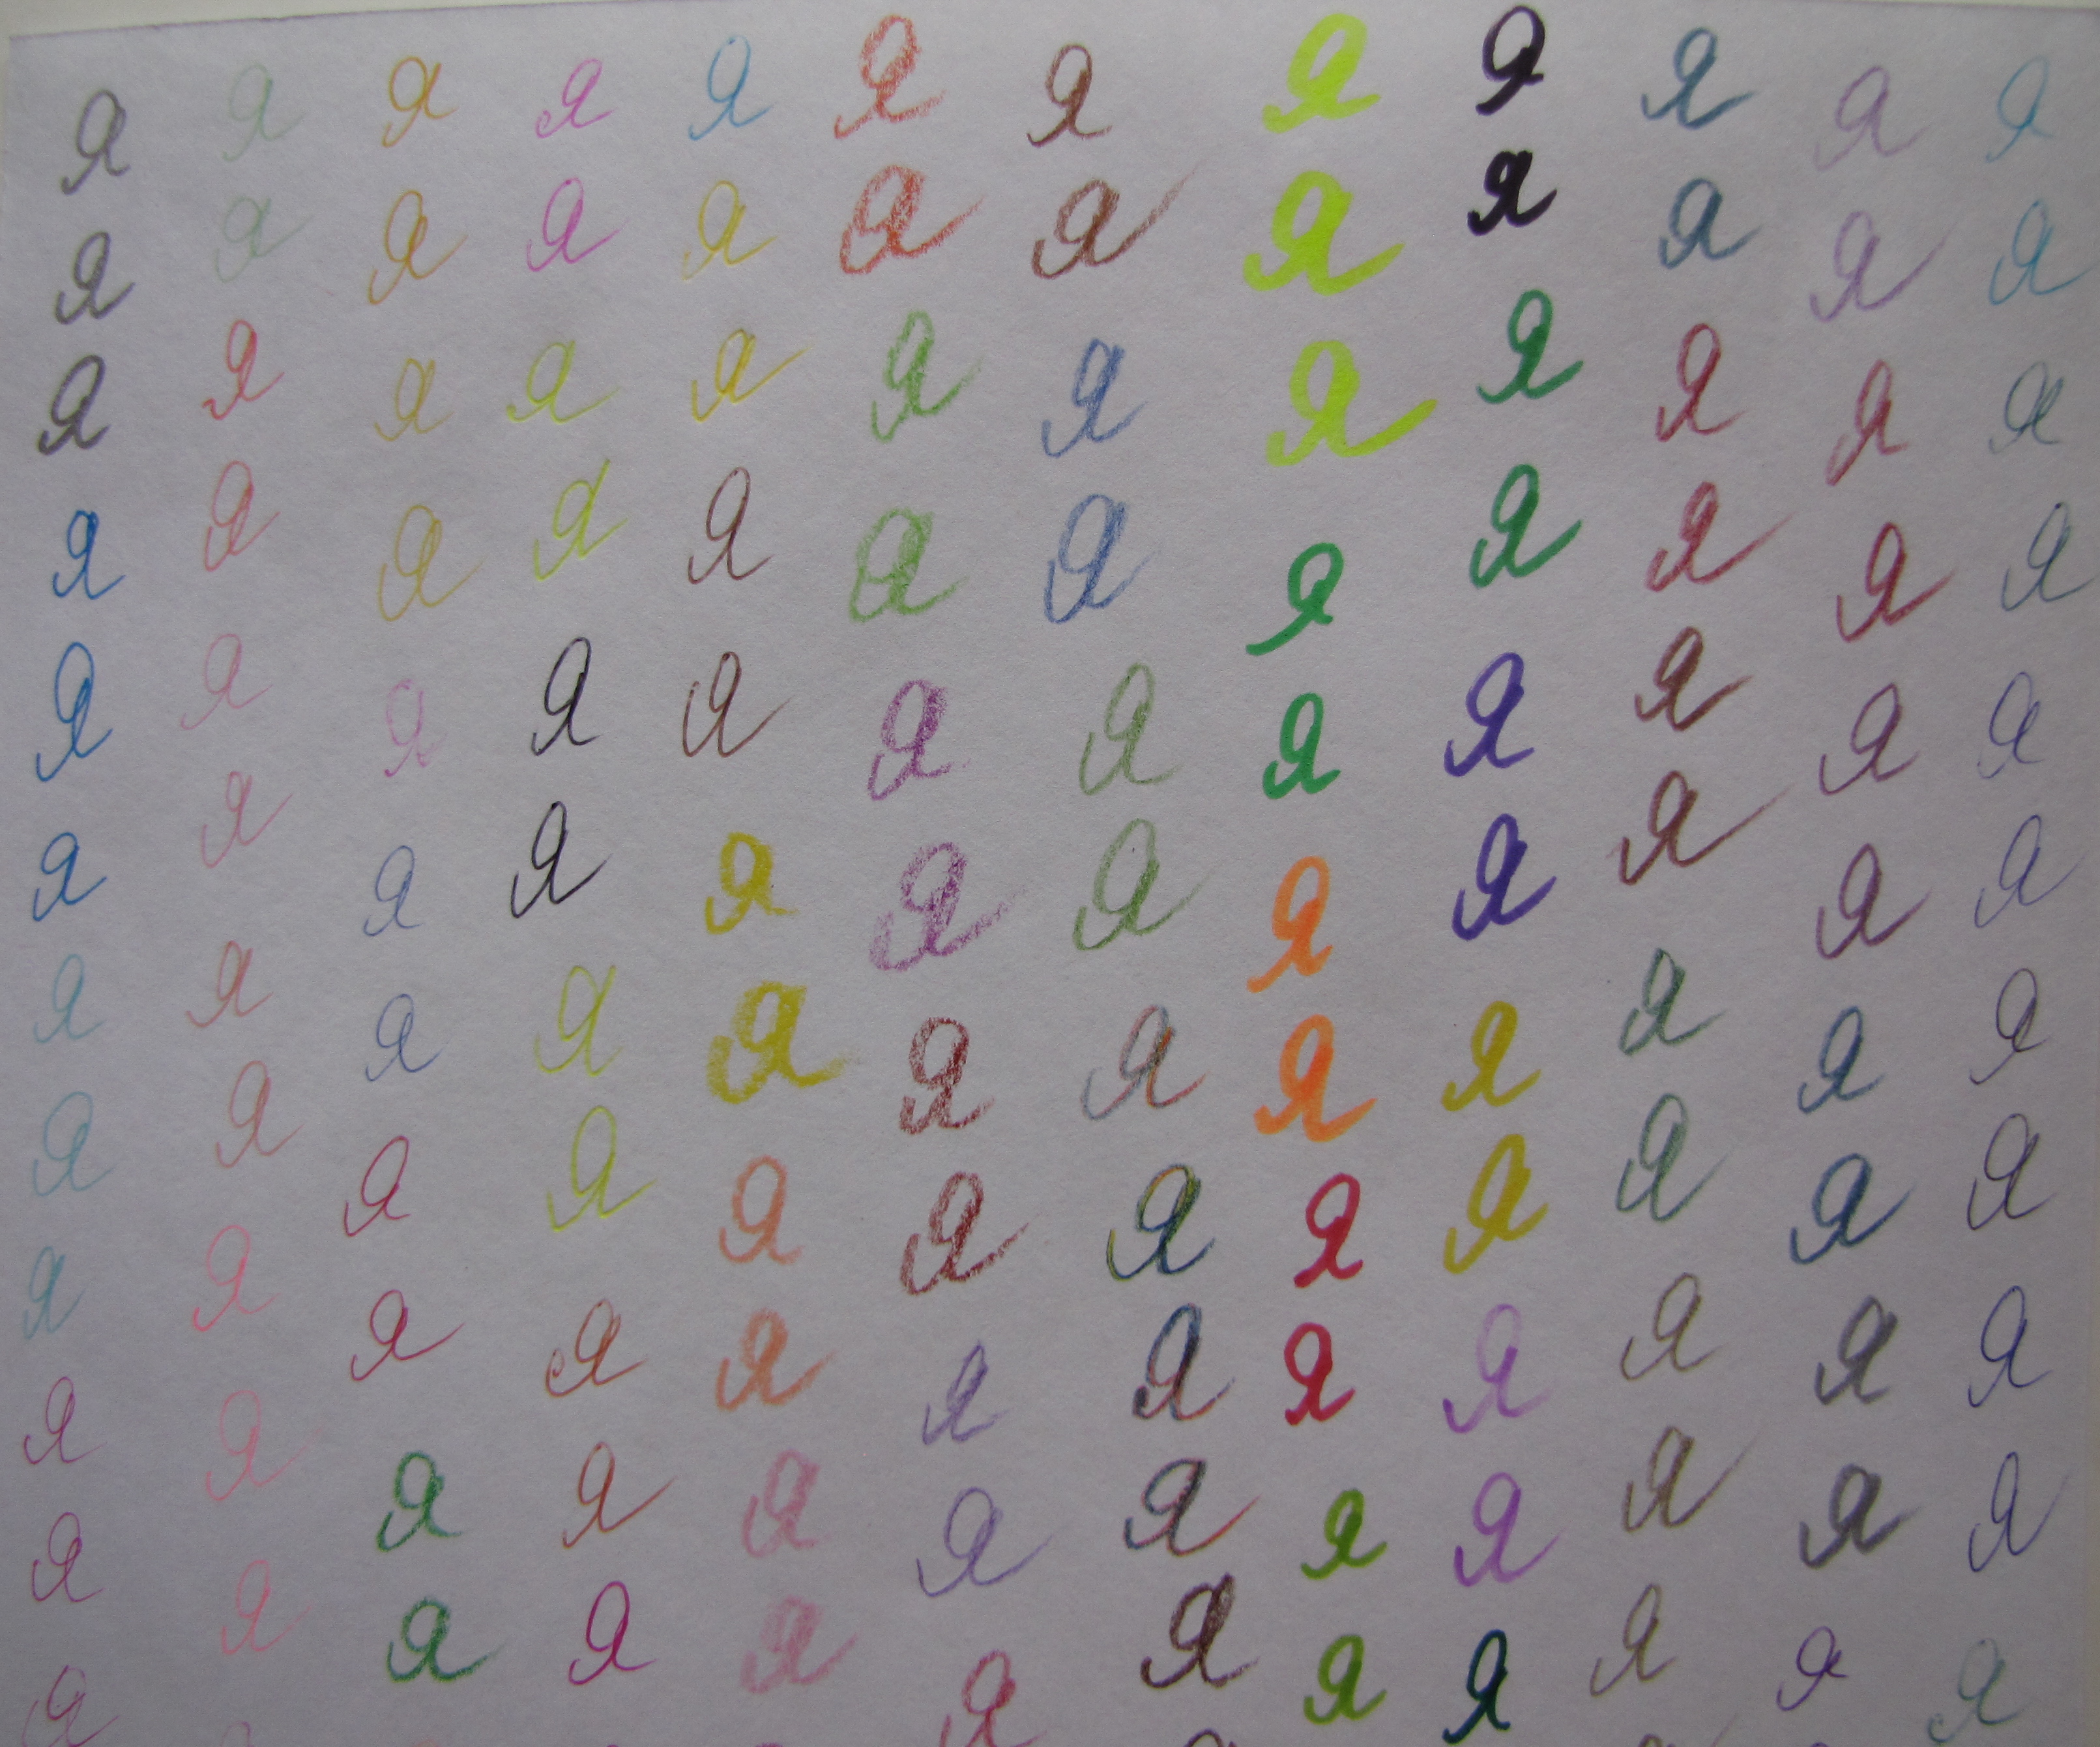 я я я я я я я я я я я я
я я я я я я я я я я я я
я я я я я я я я я я я я
я я я я я я я я я я я я
я я я я я я я я я я я я
я я я я я я я я я я я я
я я я я я я я я я я я я
я я я я я я я я я я я я
я я я я я я я я я я я я
я я я я я я я я я я я я
я я я я я я я я я я я я
я